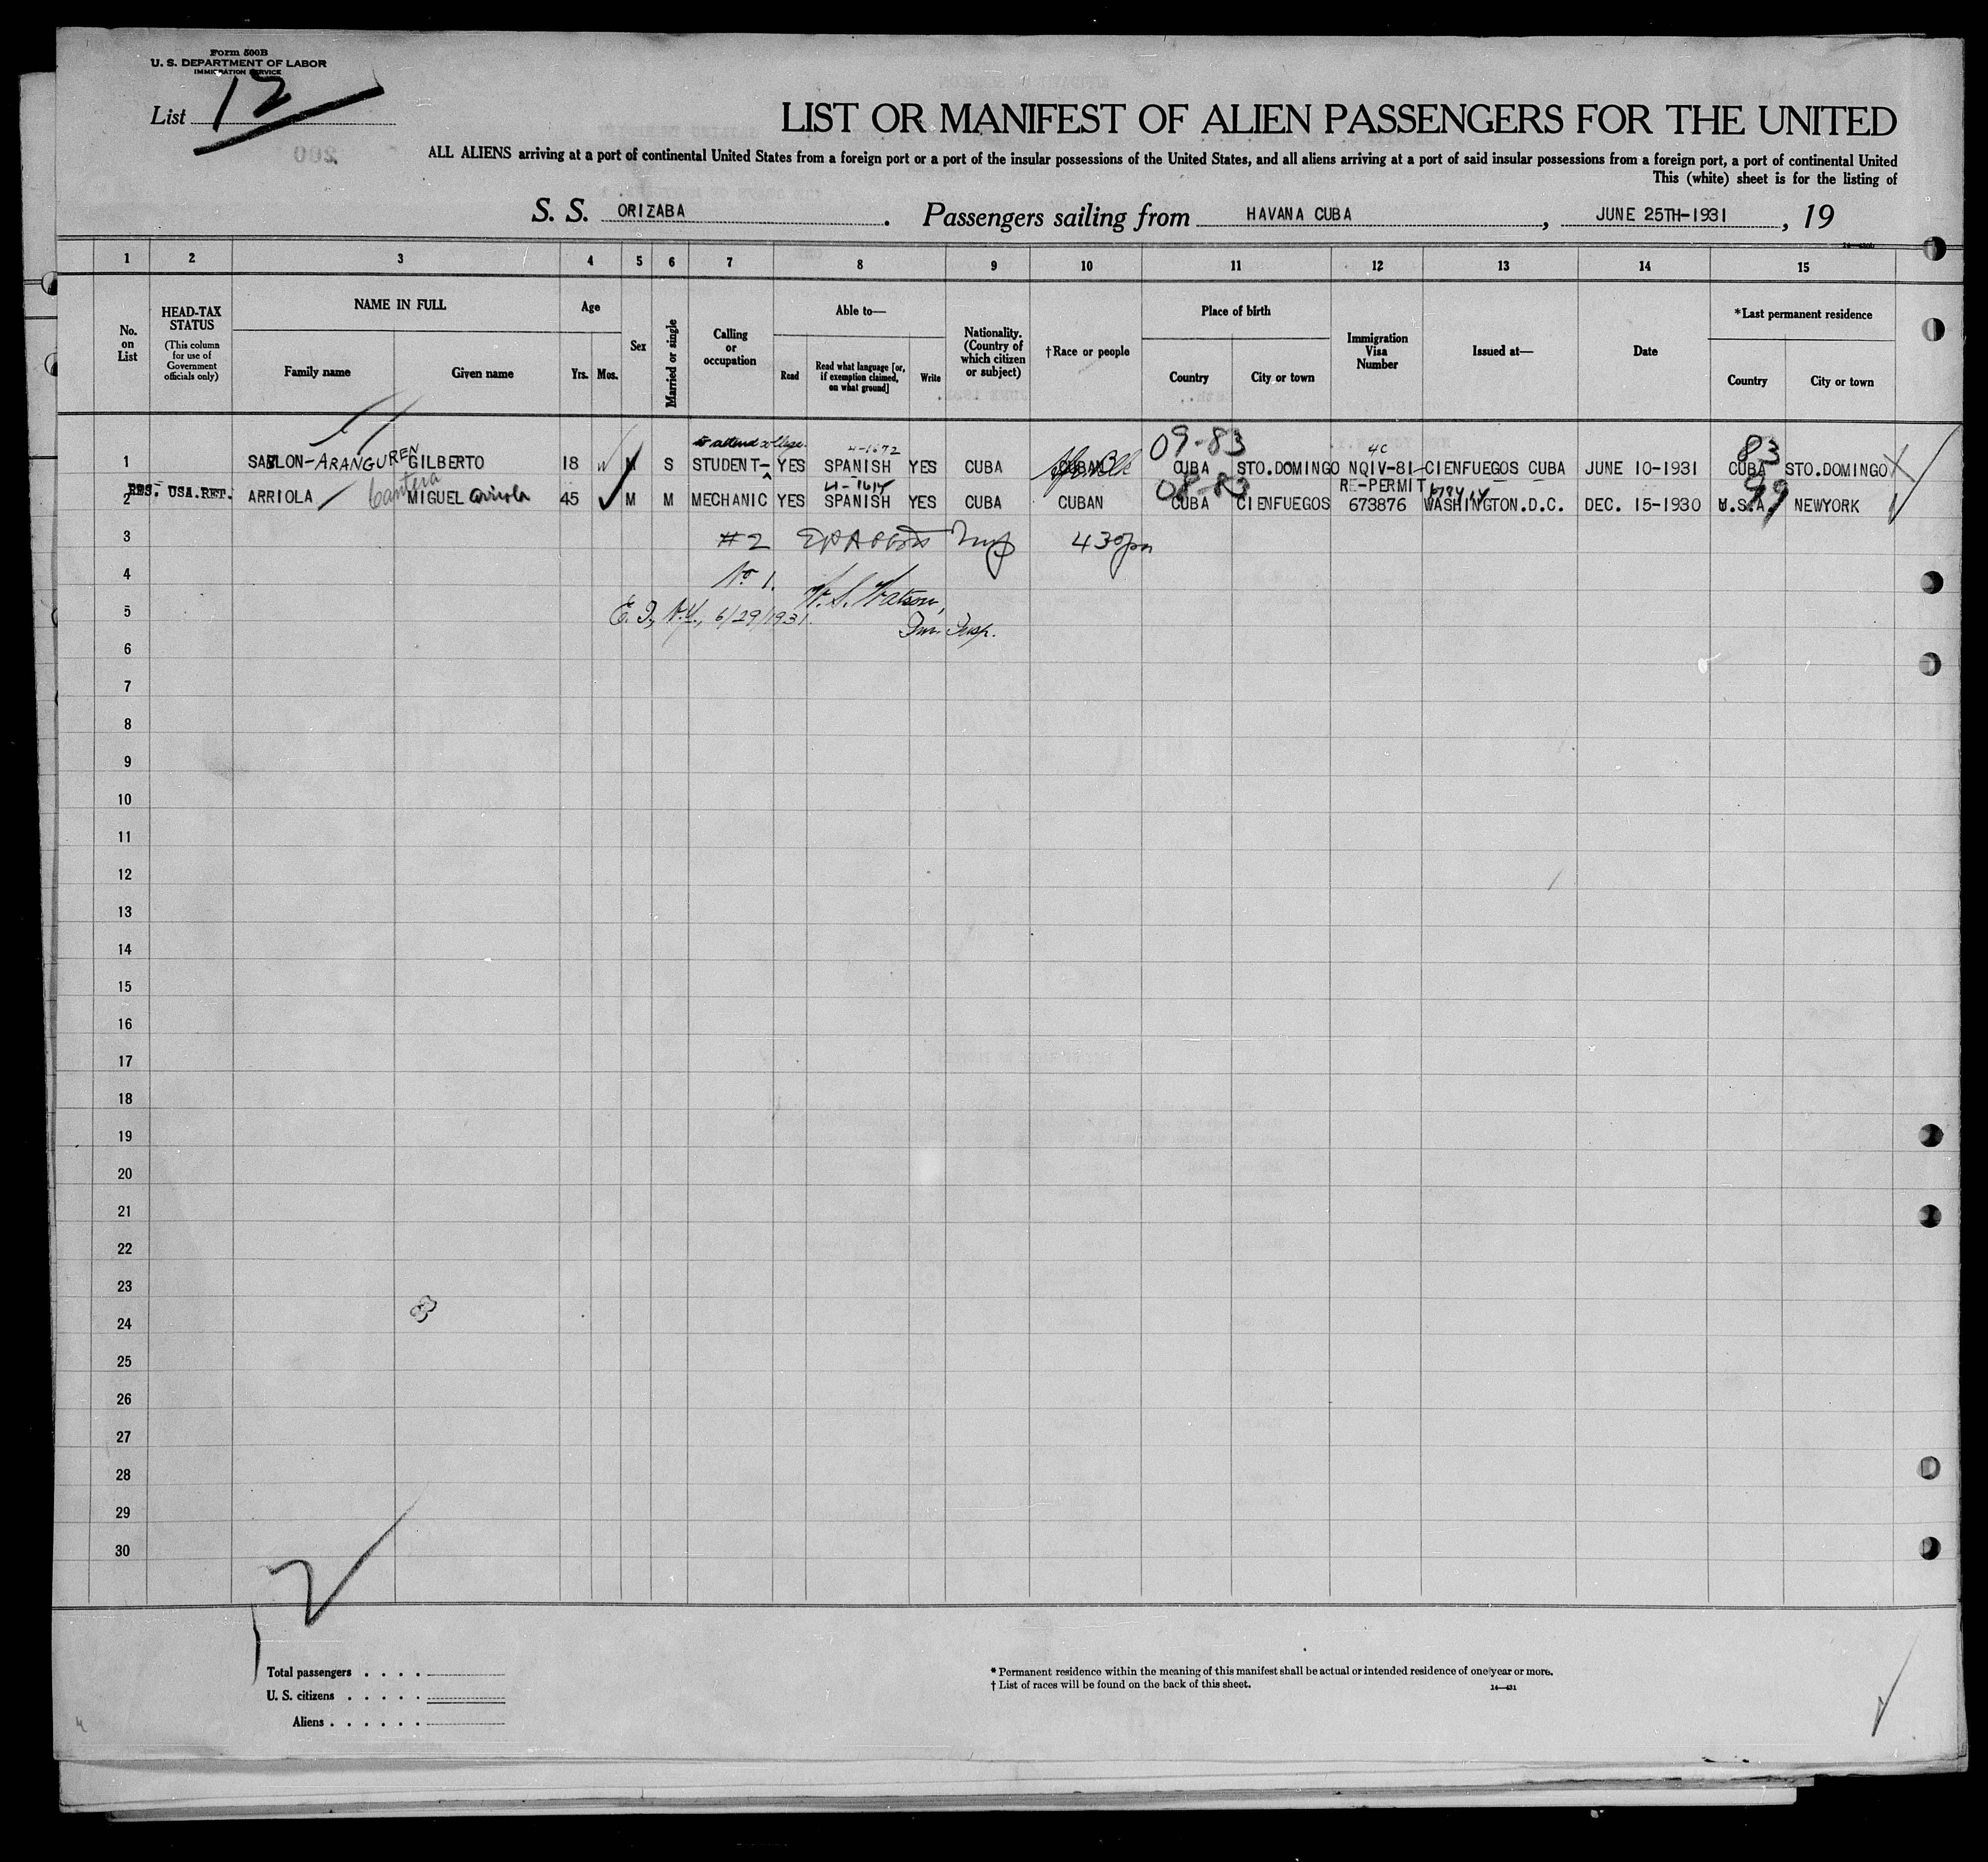 Form 500B
U. S. DEPARTMENT OF LABOR
IMMIGRATION SERVICE
List 12
LIST OR MANIFEST OF ALIEN PASSENGERS FOR THE UNITED
ALL ALIENS arriving at a port of continental United States from a foreign port or a port of the insular possessions of the United States, and all aliens arriving at a port of said insular possessions from a foreign port, a port of continental United
This (white) sheet is for the listing of
S. S. ORIZABA. Passengers sailing from HAVANA CUBA, JUNE 25TH-1931, 19
1 2 3 4 5 6 7 8 9 10 11 12 13 14 15
No. on List
HEAD-TAX STATUS
(This column for use of Government officials only)
NAME IN FULL
Family name
Given name
Age
Yrs. Mos.
Sex
Married or single
Calling or occupation
Able to—
Read
Read what language [or, if exemption claimed, on what ground]
Write
Nationality. (Country of which citizen or subject)
†Race or people
Place of birth
Country
City or town
Immigration Visa Number
Issued at—
Date
*Last permanent residence
Country
City or town
to attend college. 4-1672 09-83 4C 83
1 SABLON-ARANGUREN GILBERTO 18 M S STUDENT- YES SPANISH YES CUBA CUBAN CUBA STO.DOMINGO NQIV-81 CIENFUEGOS CUBA JUNE 10-1931 CUBA STO.DOMINGO
Cantera 4-1614 08-83 RE-PERMIT 99
2 RES. USA.RET. ARRIOLA MIGUEL Arriola 45 M M MECHANIC YES SPANISH YES CUBA CUBAN CUBA CIENFUEGOS 673876 WASHINGTON.D.C. DEC. 15-1930 U.S.A. NEWYORK
3 #2 430pm
4 No 1. W. S. Watson,
5 E. I., N.Y., 6/29/1931. Im. Insp.
6
7
8
9
10
11
12
13
14
15
16
17
18
19
20
21
22
23
24
25
26
27
28
29
30
Total passengers . . . .
U. S. citizens . . . . .
Aliens . . . . . .
* Permanent residence within the meaning of this manifest shall be actual or intended residence of one year or more.
† List of races will be found on the back of this sheet.
14—431